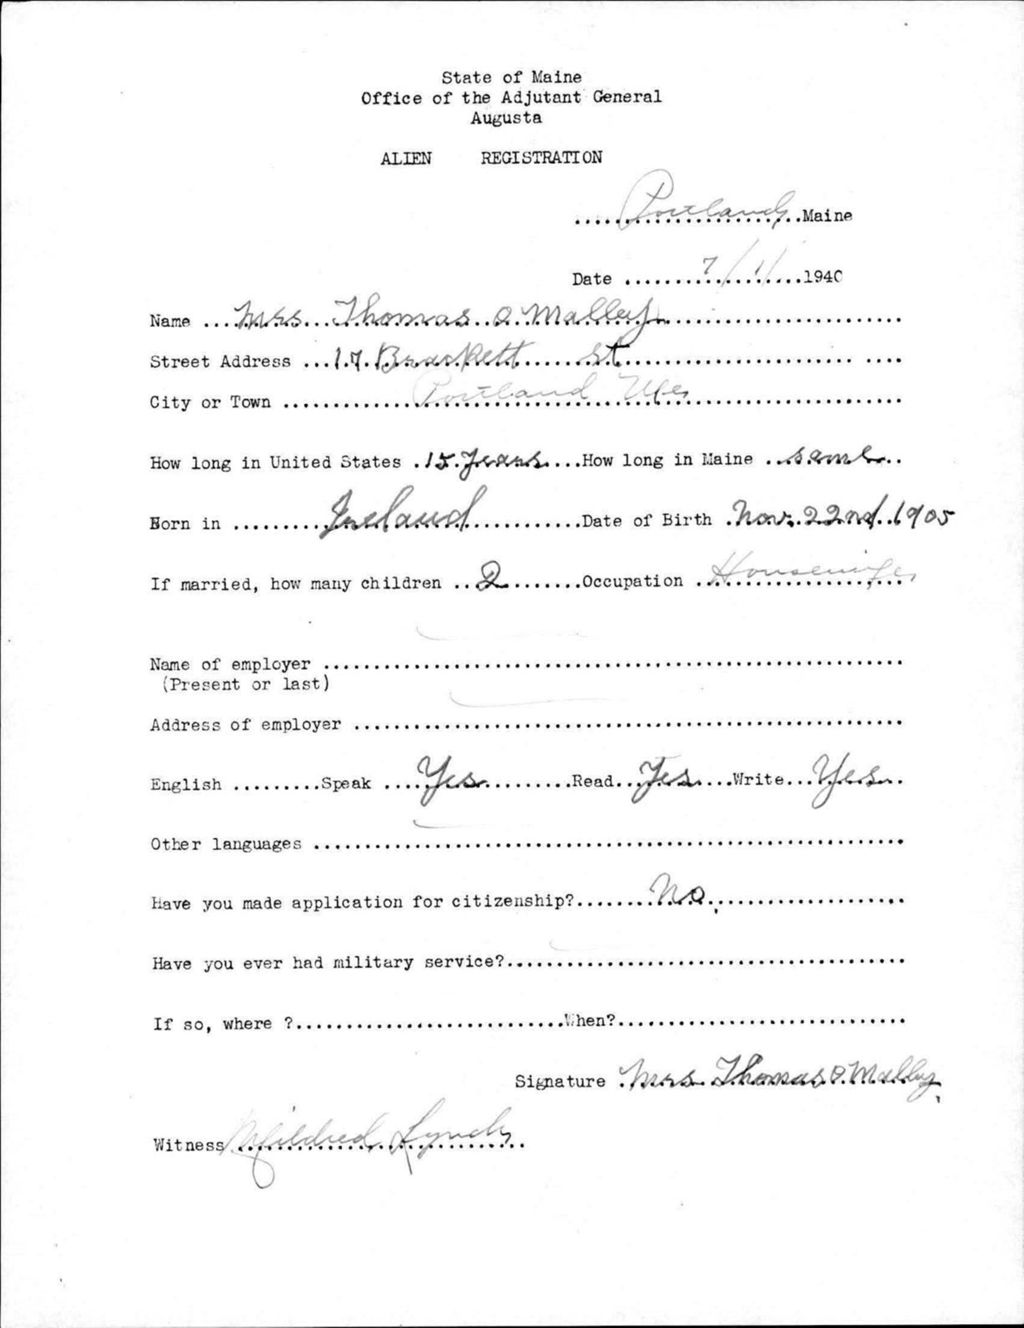 State of Maine
Office of the Adjutant General
Augusta
ALIEN REGISTRATION
.....Portland.....Maine
Date .....7/1/.....1940
Name ...Mrs. Thomas O Malley.....
Street Address ...17 Brackett St.....
City or Town .....Portland Me.....
How long in United States .15 Years....How long in Maine ..same..
Born in .....Ireland.....Date of Birth .Nov. 22nd 1905
If married, how many children ..2.....Occupation ..Housewife
Name of employer .....
(Present or last)
Address of employer .....
English .....Speak ....Yes.....Read...Yes....Write...Yes...
Other languages .....
Have you made application for citizenship?.....No.....
Have you ever had military service?.....
If so, where ?.....When?.....
Signature .Mrs. Thomas O Malley
Witness Mildred Lynch.....